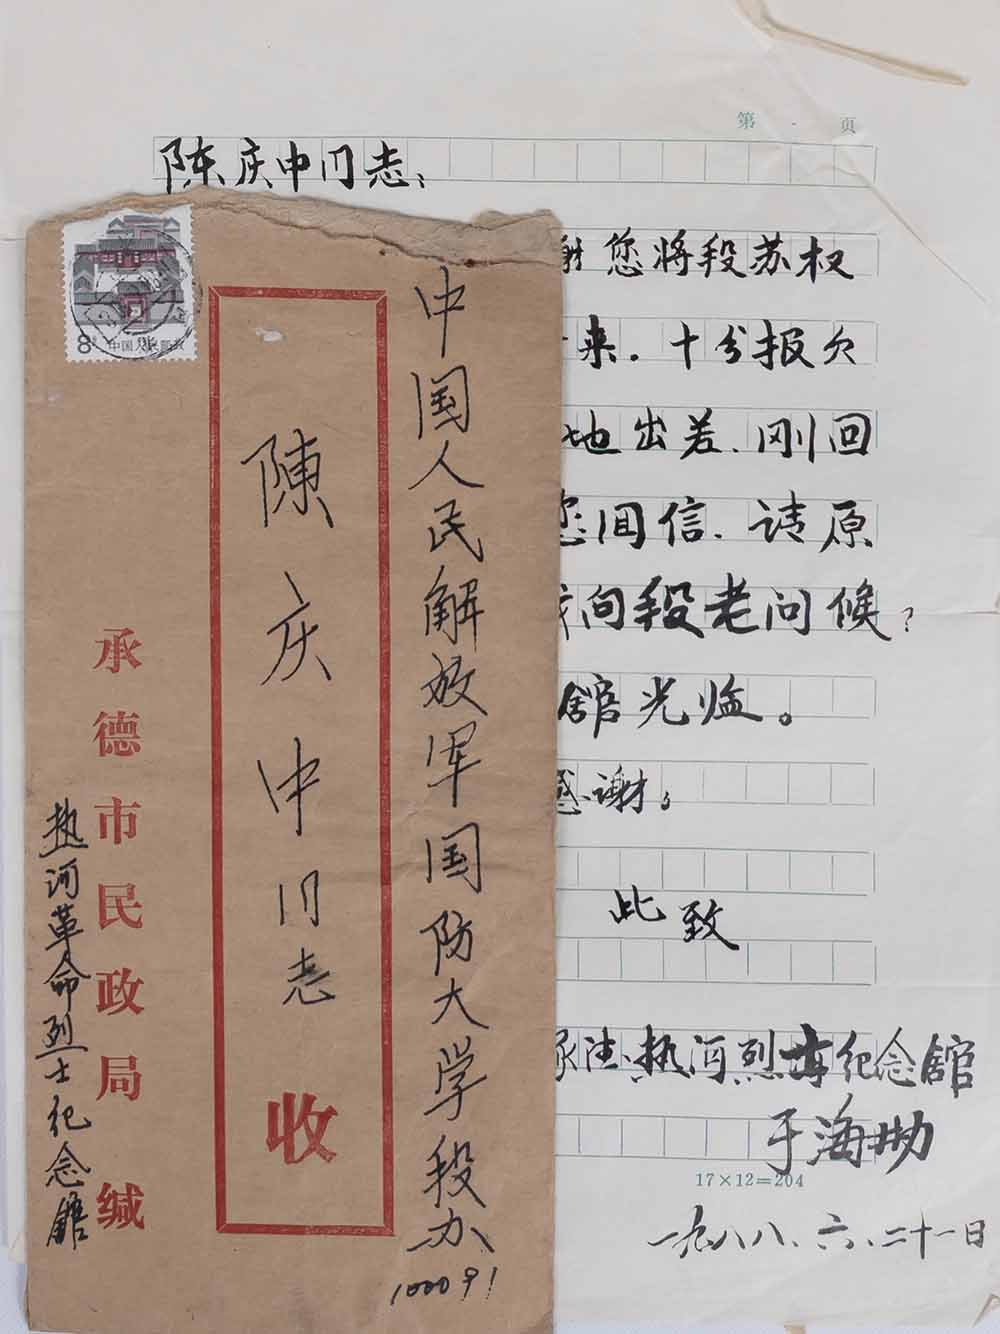 第 页
陈庆中同志：
谢您将段苏权
来。十分报欠
地出差、刚回
您回信、请原
我向段老问候？
馆光临。
感谢。
此致
承德热河烈士纪念馆
于海
17×12=204
一九八八、六、二十一日
8
中国人民邮政
中国人民解放军国防大学段办
100091
陳庆中同志
收
承德市民政局缄
热河革命烈士纪念馆